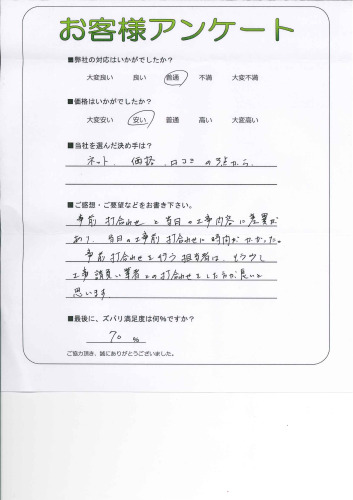 お客様アンケート
■弊社の対応はいかがでしたか？
大変良い 良い 普通 不満 大変不満
■価格はいかがでしたか？
大変安い 安い 普通 高い 大変高い
■当社を選んだ決め手は？
ネット、価格、口コミ の3点から、
■ご感想・ご要望などをお書き下さい。
事前打合わせと当日の工事内容に差異が
あり、当日の工事前打合わせに時間がかかった。
事前打合わせを行う担当者は、もう少し
工事請負い業者との打合わせをした方が良いと
思います
■最後に、ズバリ満足度は何%ですか？
70 %
ご協力頂き、誠にありがとうございました。